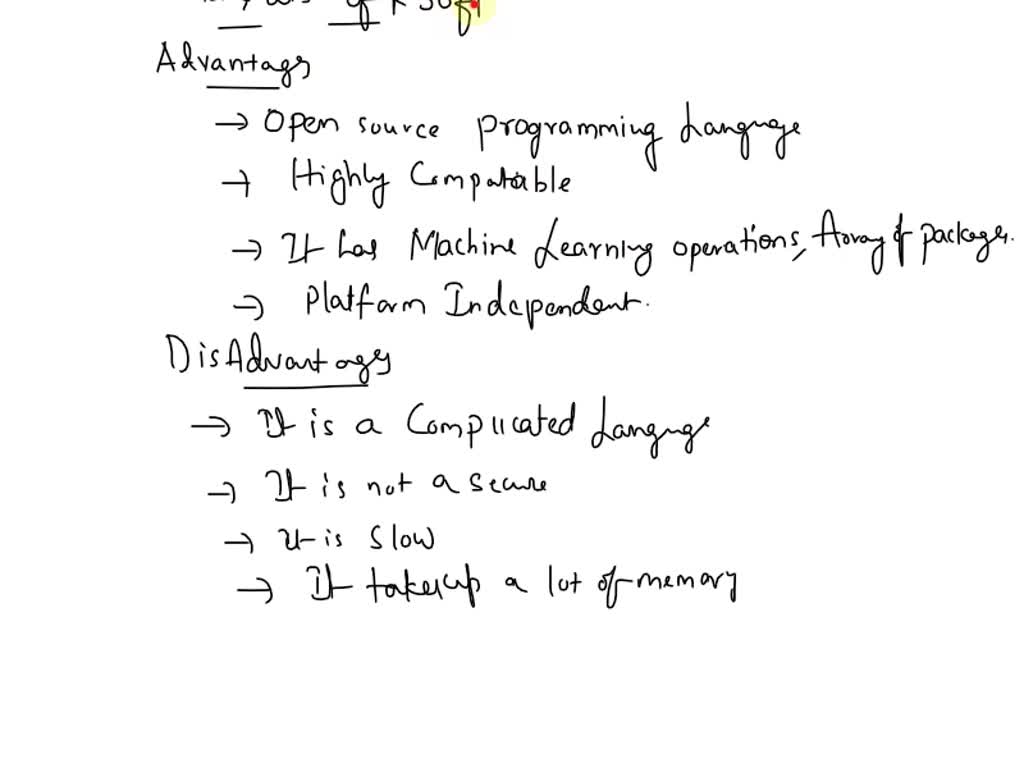 of R Sof
Advantags
→ Open source programming Language
→ Highly Compatable
→ It has Machine Learning operations, Array of packages.
→ Platform Independent.
DisAdvantages
→ It is a Complicated Language
→ It is not a secure
→ It is Slow
→ It takes up a lot of memory